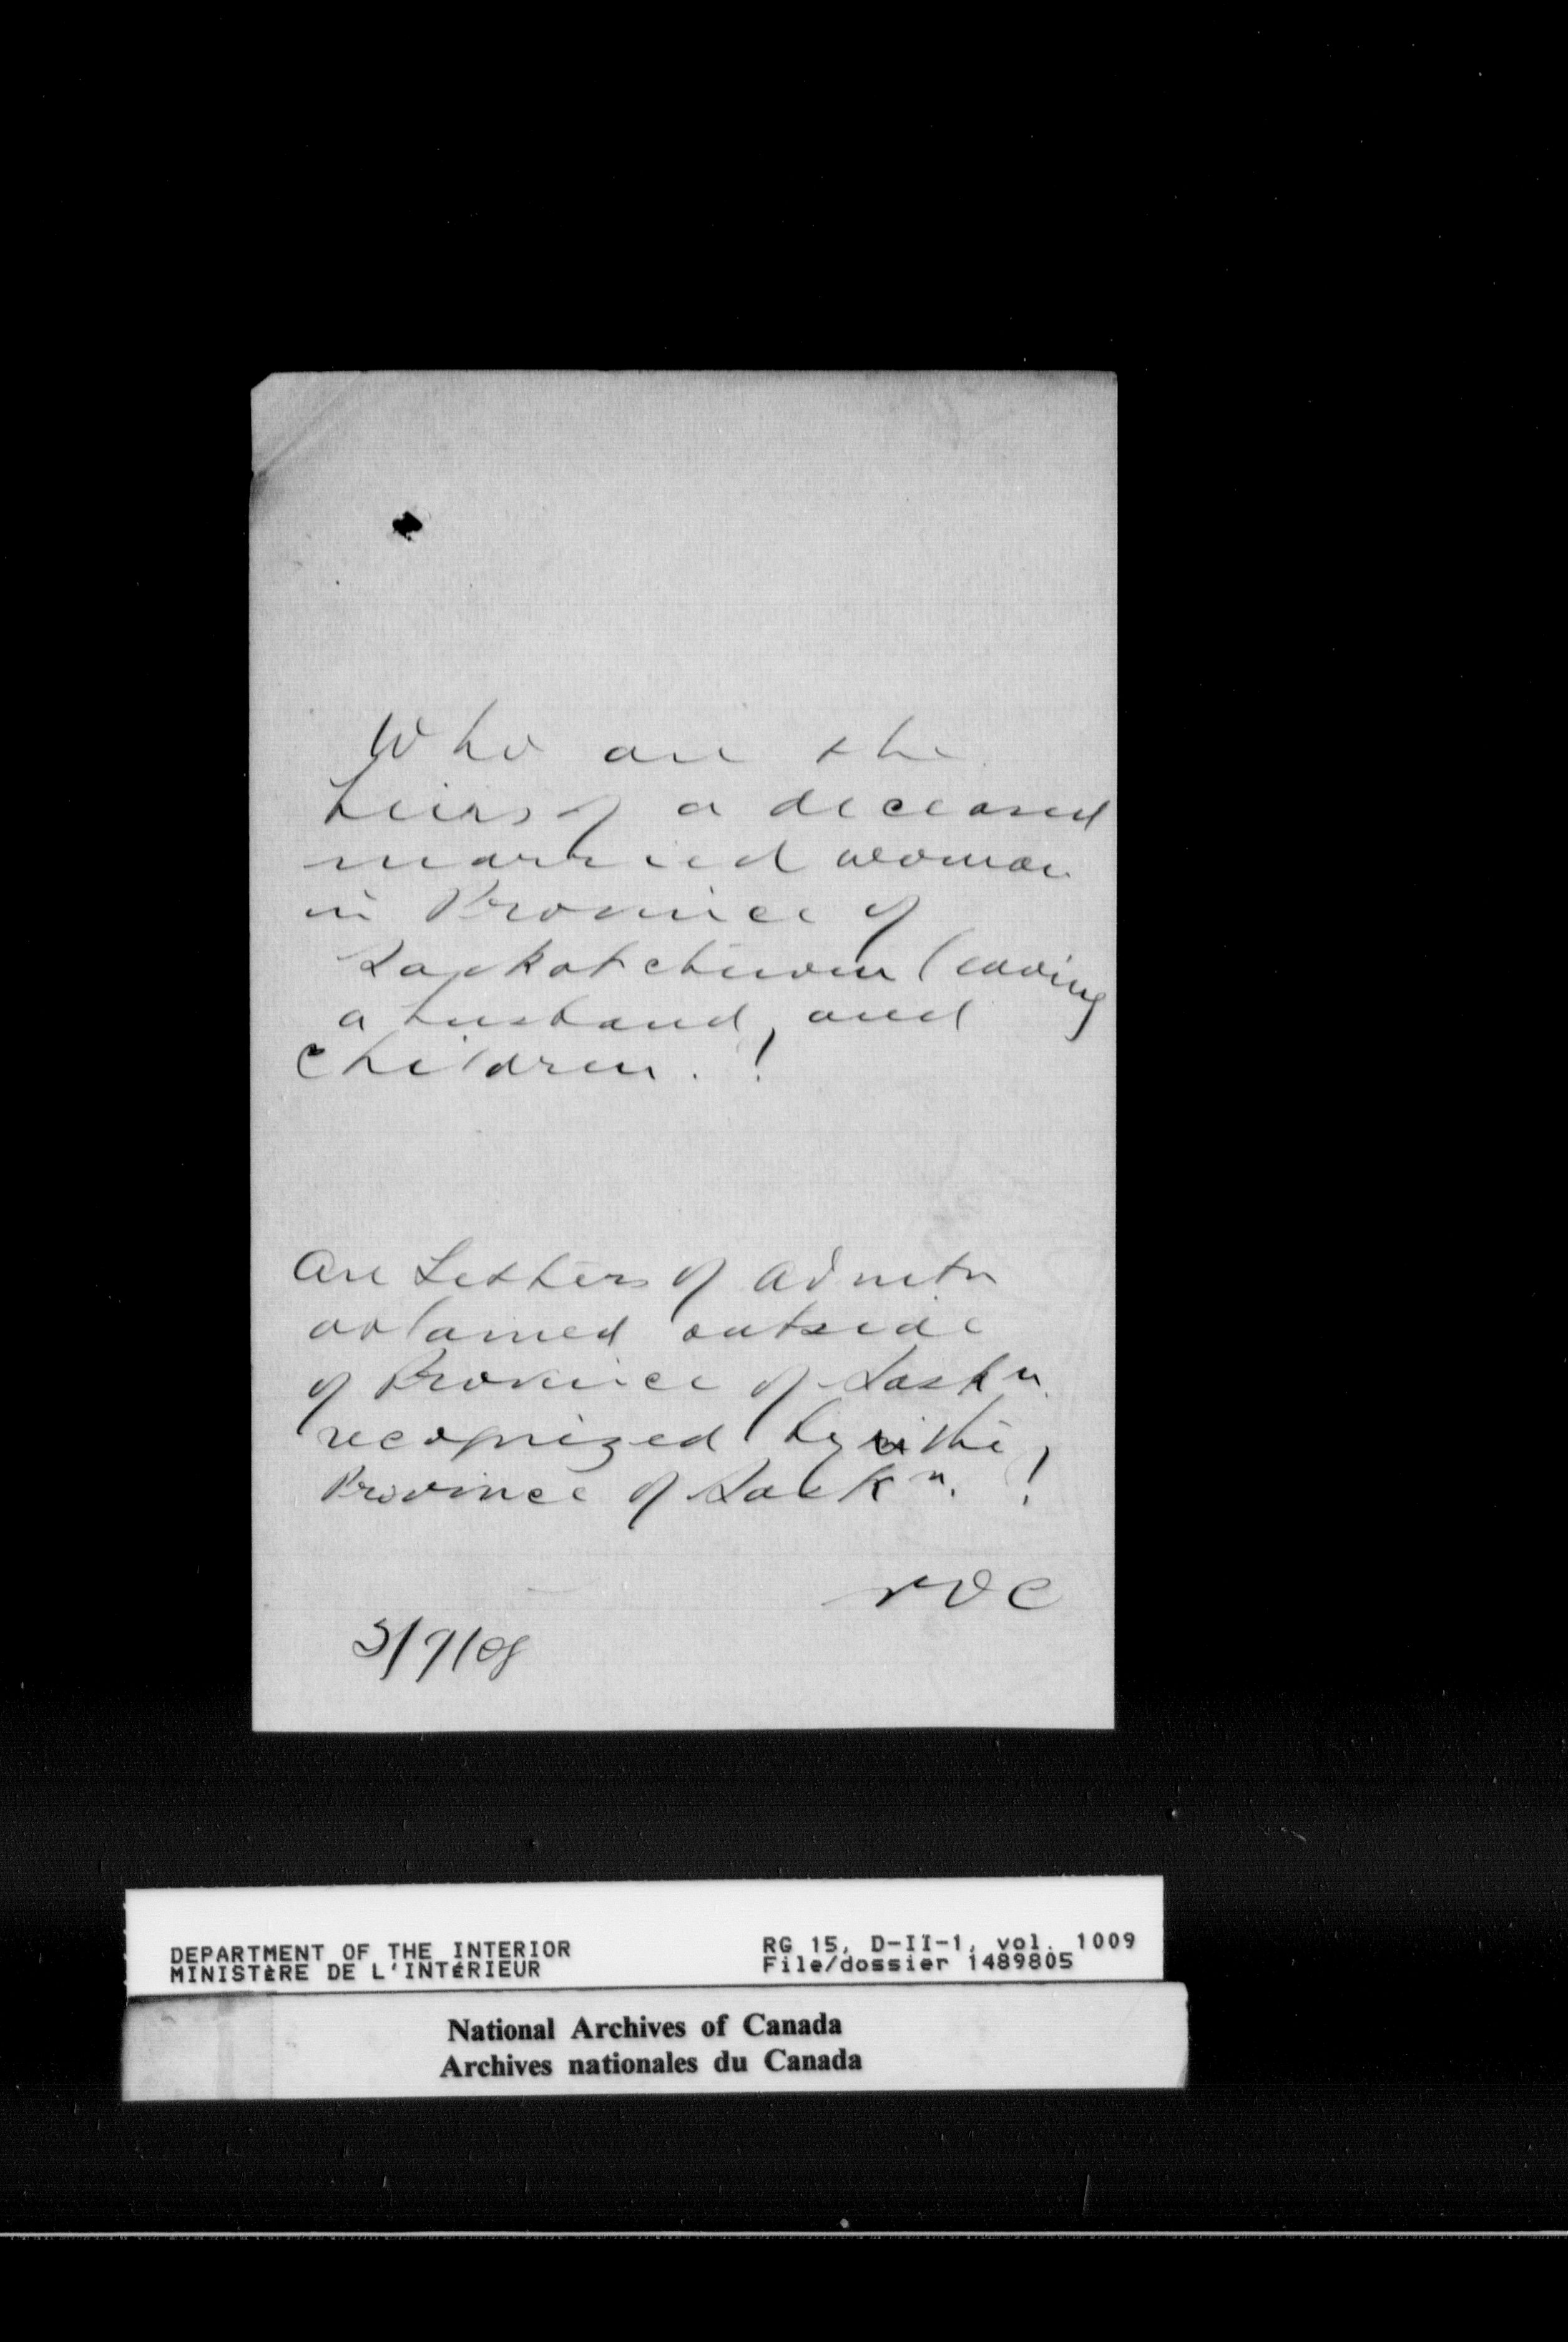 Who are the
heirs of a deceased
married woman
in Province of
Saskatchewan leaving
a husband, and
children. ?
Are Letters of Admtn
obtained outside
of Province of Saskn.
recognized by the
Province of Saskn. ?
5/9/08
DEPARTMENT OF THE INTERIOR
MINISTÈRE DE L'INTÉRIEUR
RG 15, D-II-1, vol. 1009
File/dossier 1489805
National Archives of Canada
Archives nationales du Canada